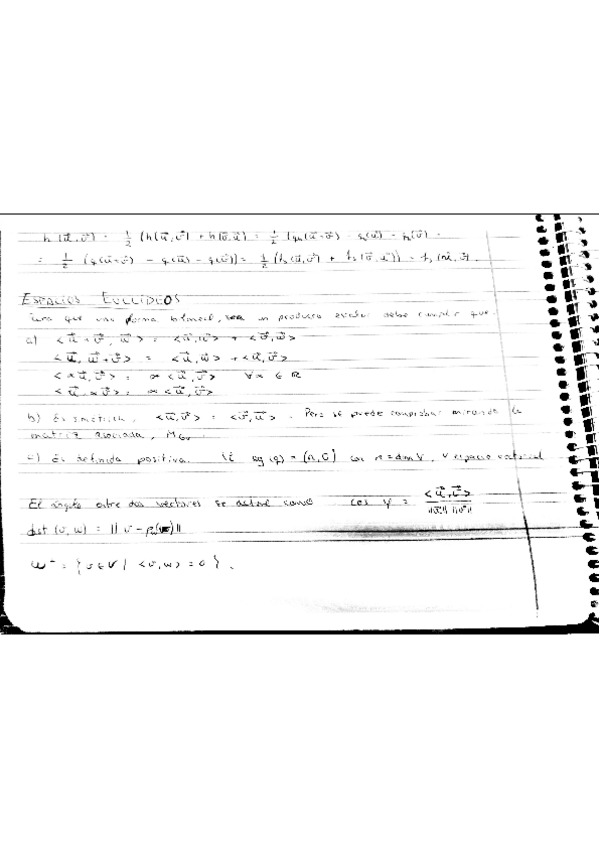 h(u⃗,v⃗) = 1/2 (h(u⃗,v⃗) + h(v⃗,u⃗)) = 1/2 (q(u⃗+v⃗) - q(u⃗) - q(v⃗)) =
= 1/2 (q(u⃗+v⃗) - q(u⃗) - q(v⃗)) = 1/2 (h(u⃗,v⃗) + h(v⃗,u⃗)) = h(u⃗,v⃗).
ESPACIOS EUCLIDEOS
Para que una forma bilineal, sea un producto escalar debe cumplir que:
a) <u⃗+v⃗, w⃗> = <u⃗,w⃗> + <v⃗,w⃗>
<u⃗, w⃗+v⃗> = <u⃗,w⃗> + <u⃗,v⃗>
<αu⃗,v⃗> = α<u⃗,v⃗> ∀α ∈ ℝ
<u⃗,αv⃗> = α<u⃗,v⃗>
b) Es simétrica, <u⃗,v⃗> = <v⃗,u⃗>. Pero se puede comprobar mirando la
matriz asociada,
c) Es definida positiva. sg(q) = (n,0) con n = dim V, V espacio vectorial
El ángulo entre dos vectores se define como cos γ = <u⃗,v⃗> / ||u⃗|| ||v⃗||
dist (v,w) = || v -
w⊥ = {v∈V | <v,w> = 0}.